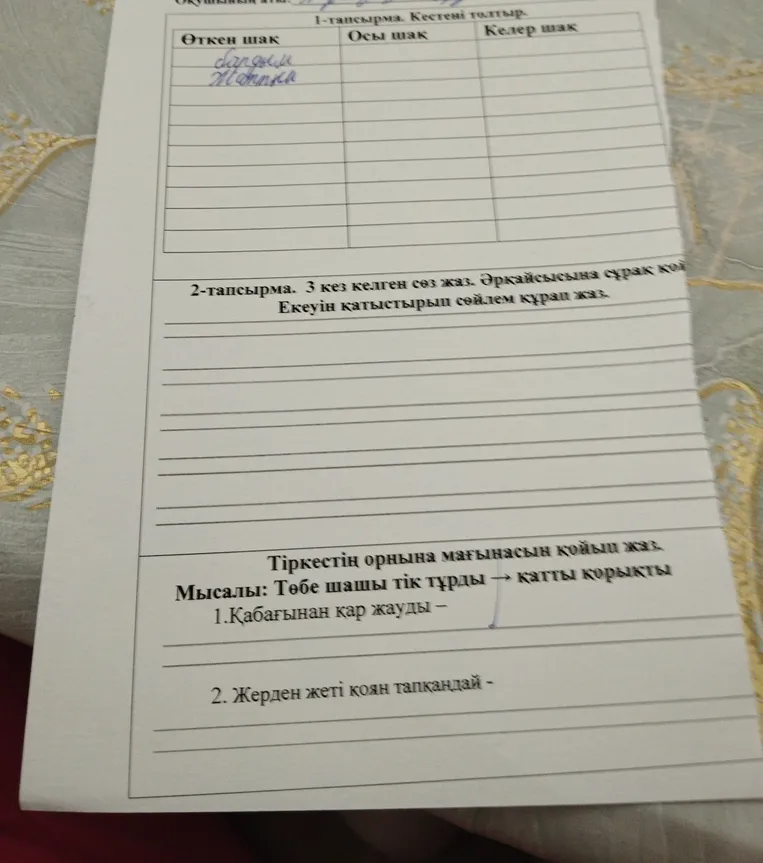 Оқушының аты:
1-тапсырма. Кестені толтыр.
Өткен шақ Осы шақ Келер шақ
бардым
2-тапсырма. 3 кез келген сөз жаз. Әрқайсысына сұрақ қой
Екеуін қатыстырып сөйлем құрап жаз.
Тіркестің орнына мағынасын қойып жаз.
Мысалы: Төбе шашы тік тұрды → қатты қорықты
1.Қабағынан қар жауды –
2. Жерден жеті қоян тапқандай -